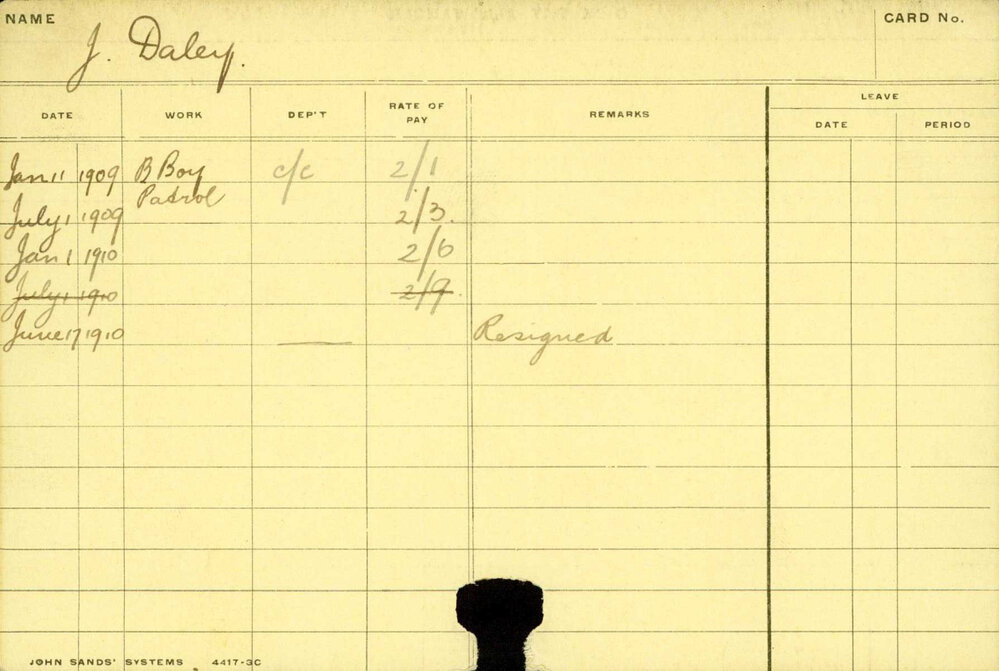 NAME
J. Daley.
CARD No.
DATE WORK DEP'T RATE OF PAY REMARKS LEAVE
DATE PERIOD
Jan 11 1909 B Boy c/c 2/1
Patrol
July 1 1909 2/3.
Jan 1 1910 2/6
July 1 1910 2/9.
June 17 1910 Resigned
JOHN SANDS' SYSTEMS 4417-3C